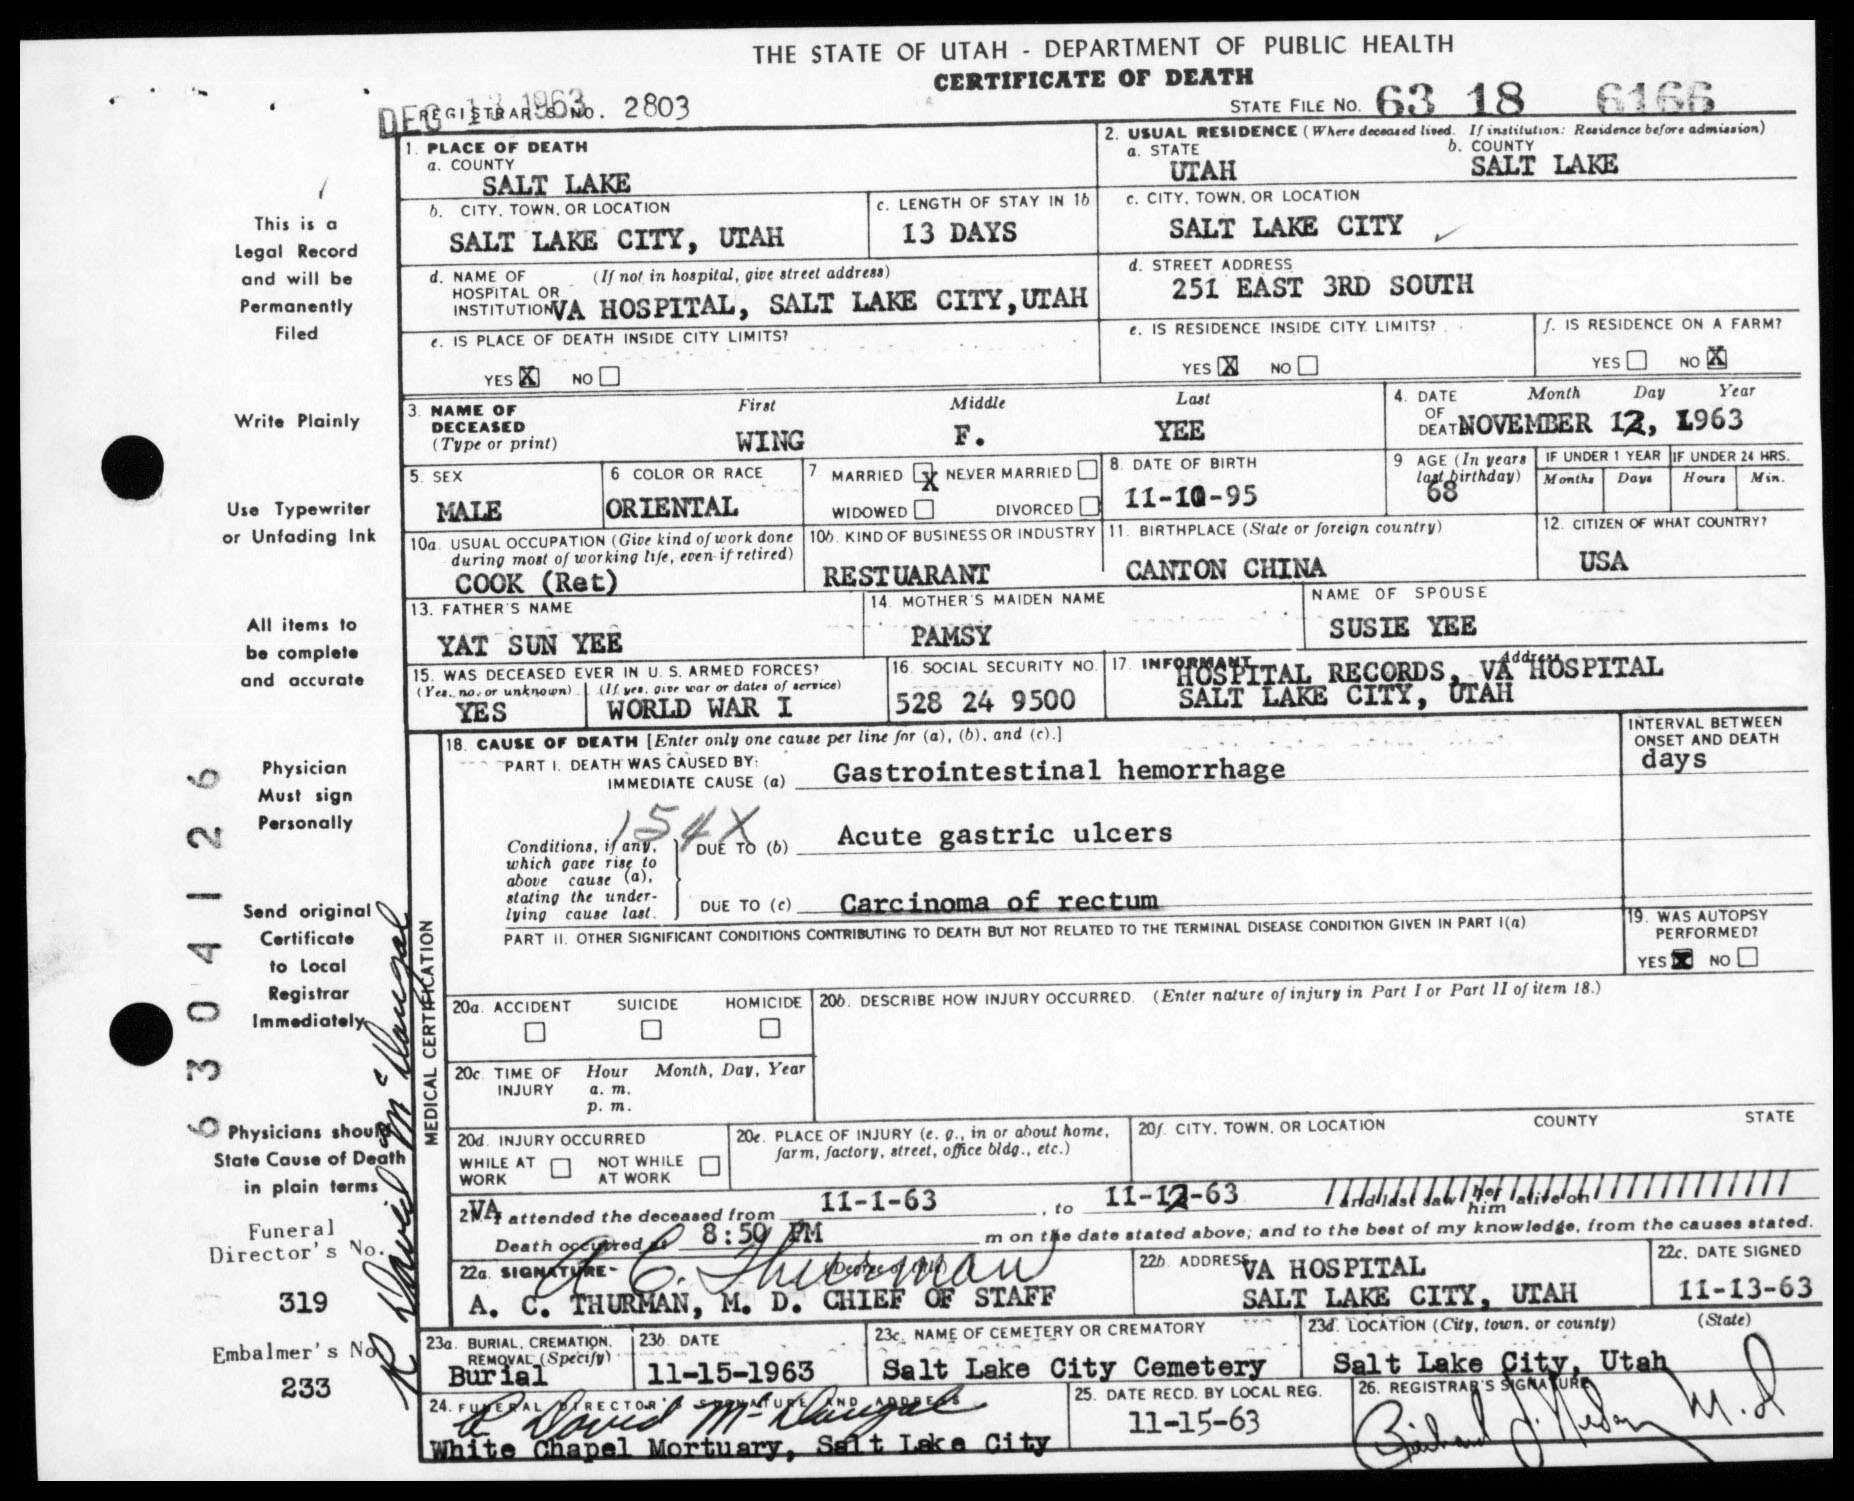 THE STATE OF UTAH - DEPARTMENT OF PUBLIC HEALTH
CERTIFICATE OF DEATH
DEC 13 1963
REGISTRAR'S NO. 2803
STATE FILE NO. 63 18 6166
1. PLACE OF DEATH
a. COUNTY
SALT LAKE
2. USUAL RESIDENCE (Where deceased lived. If institution: Residence before admission)
a. STATE
UTAH
b. COUNTY
SALT LAKE
b. CITY, TOWN, OR LOCATION
SALT LAKE CITY, UTAH
c. LENGTH OF STAY IN 1b
13 DAYS
c. CITY, TOWN, OR LOCATION
SALT LAKE CITY
d. NAME OF (If not in hospital, give street address)
HOSPITAL OR
INSTITUTION VA HOSPITAL, SALT LAKE CITY, UTAH
d. STREET ADDRESS
251 EAST 3RD SOUTH
e. IS PLACE OF DEATH INSIDE CITY LIMITS?
YES X NO
e. IS RESIDENCE INSIDE CITY LIMITS?
YES X NO
f. IS RESIDENCE ON A FARM?
YES NO X
3. NAME OF
DECEASED
(Type or print)
First Middle Last
WING F. YEE
4. DATE Month Day Year
OF
DEATH NOVEMBER 12, 1963
5. SEX
MALE
6 COLOR OR RACE
ORIENTAL
7 MARRIED X NEVER MARRIED
WIDOWED DIVORCED
8. DATE OF BIRTH
11-10-95
9 AGE (In years
last birthday)
68
IF UNDER 1 YEAR IF UNDER 24 HRS.
Months Days Hours Min.
10a. USUAL OCCUPATION (Give kind of work done
during most of working life, even if retired)
COOK (Ret)
10b. KIND OF BUSINESS OR INDUSTRY
RESTUARANT
11. BIRTHPLACE (State or foreign country)
CANTON CHINA
12. CITIZEN OF WHAT COUNTRY?
USA
13. FATHER'S NAME
YAT SUN YEE
14. MOTHER'S MAIDEN NAME
PAMSY
NAME OF SPOUSE
SUSIE YEE
15. WAS DECEASED EVER IN U. S. ARMED FORCES?
(Yes, no, or unknown) (If yes, give war or dates of service)
YES WORLD WAR I
16. SOCIAL SECURITY NO.
528 24 9500
17. INFORMANT Address
HOSPITAL RECORDS, VA HOSPITAL
SALT LAKE CITY, UTAH
MEDICAL CERTIFICATION
18. CAUSE OF DEATH [Enter only one cause per line for (a), (b), and (c).]
INTERVAL BETWEEN
ONSET AND DEATH
PART I. DEATH WAS CAUSED BY:
IMMEDIATE CAUSE (a) Gastrointestinal hemorrhage
days
154X
Conditions, if any,
which gave rise to
above cause (a),
stating the under-
lying cause last.
DUE TO (b) Acute gastric ulcers
DUE TO (c) Carcinoma of rectum
PART II. OTHER SIGNIFICANT CONDITIONS CONTRIBUTING TO DEATH BUT NOT RELATED TO THE TERMINAL DISEASE CONDITION GIVEN IN PART I(a)
19. WAS AUTOPSY
PERFORMED?
YES X NO
20a. ACCIDENT SUICIDE HOMICIDE
20b. DESCRIBE HOW INJURY OCCURRED. (Enter nature of injury in Part I or Part II of item 18.)
20c. TIME OF Hour Month, Day, Year
INJURY a. m.
p. m.
20d. INJURY OCCURRED
WHILE AT NOT WHILE
WORK AT WORK
20e. PLACE OF INJURY (e. g., in or about home,
farm, factory, street, office bldg., etc.)
20f. CITY, TOWN, OR LOCATION COUNTY STATE
21. VA attended the deceased from 11-1-63, to 11-12-63 and last saw her him alive on
Death occurred at 8:50 PM m on the date stated above; and to the best of my knowledge, from the causes stated.
22a. SIGNATURE (Degree or title)
A C. Thurman
A. C. THURMAN, M. D. CHIEF OF STAFF
22b. ADDRESS
VA HOSPITAL
SALT LAKE CITY, UTAH
22c. DATE SIGNED
11-13-63
23a. BURIAL, CREMATION,
REMOVAL (Specify)
Burial
23b. DATE
11-15-1963
23c. NAME OF CEMETERY OR CREMATORY
Salt Lake City Cemetery
23d. LOCATION (City, town, or county) (State)
Salt Lake City, Utah
24. FUNERAL DIRECTOR'S SIGNATURE AND ADDRESS
R David McDougal
White Chapel Mortuary, Salt Lake City
25. DATE RECD. BY LOCAL REG.
11-15-63
26. REGISTRAR'S SIGNATURE
Richard J. Nelson M.D
This is a
Legal Record
and will be
Permanently
Filed
Write Plainly
Use Typewriter
or Unfading Ink
All items to
be complete
and accurate
Physician
Must sign
Personally
Send original
Certificate
to Local
Registrar
Immediately
Physicians should
State Cause of Death
in plain terms
Funeral
Director's No.
319
Embalmer's No
233
6304126
R David McDougal